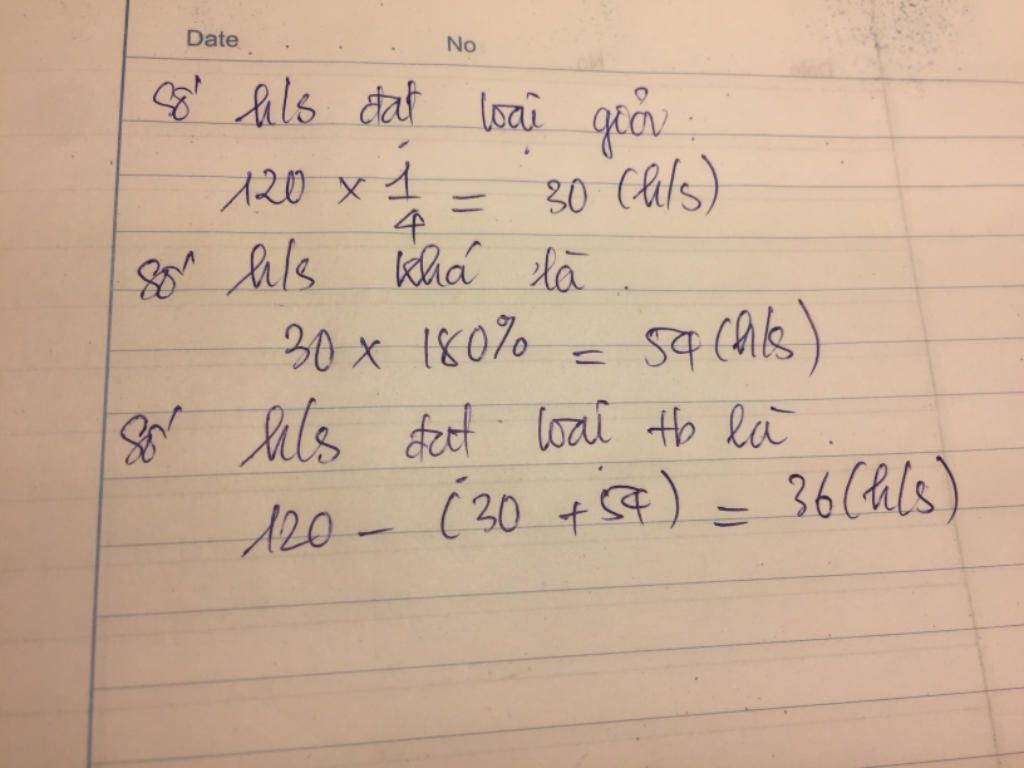 Date No
Số h/s đạt loại giỏi
120 × 1/4 = 30 (h/s)
Số h/s khá là.
30 × 180% = 54 (h/s)
Số h/s đạt loại tb là.
120 - (30 + 54) = 36 (h/s)